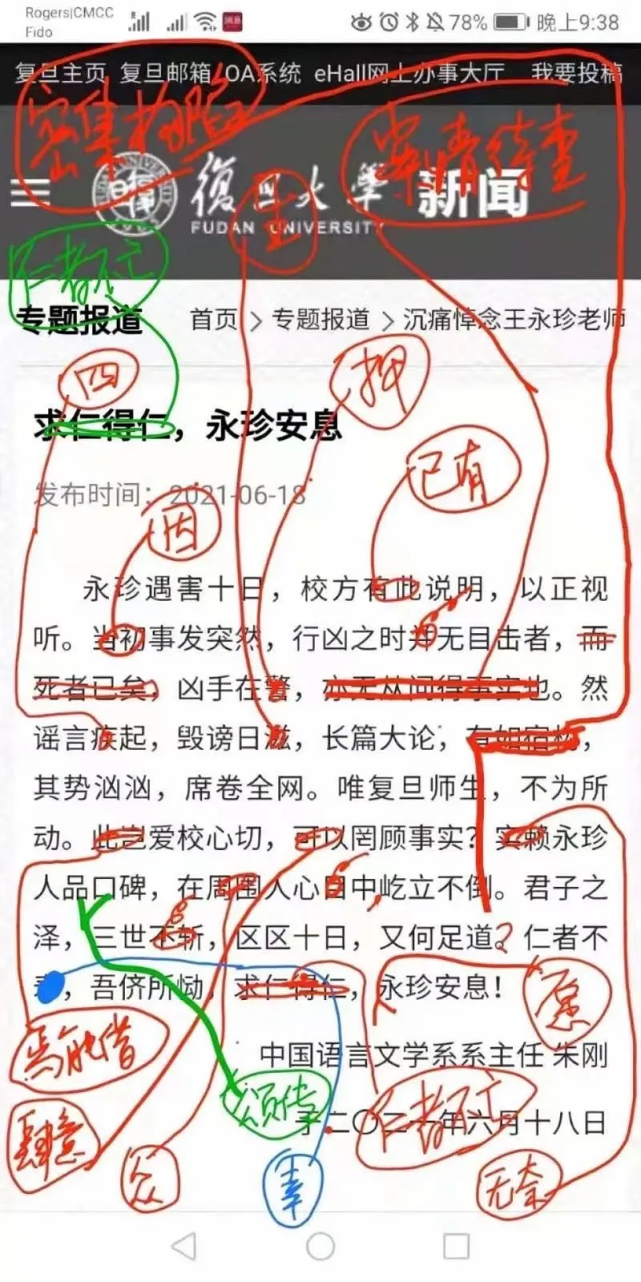 Rogers|CMCC
Fido
78% 晚上9:38
复旦主页 复旦邮箱 OA系统 eHall网上办事大厅 我要投稿
密集构陷
案情待查
復旦大學 新闻
FUDAN UNIVERSITY
仁者不亡
专题报道 首页 > 专题报道 > 沉痛悼念王永珍老师
四
押
求仁得仁，永珍安息
已有
发布时间：2021-06-18
因
永珍遇害十日，校方有此说明，以正视
听。当初事发突然，行凶之时并无目击者，而
死者已矣，凶手在警，亦无从问得事实也。然
谣言疾起，毁谤日滋，长篇大论，有如宿构，
其势汹汹，席卷全网。唯复旦师生，不为所
动。此岂爱校心切，可以罔顾事实？实赖永珍
人品口碑，在周围人心目中屹立不倒。君子之
泽，三世不斩，区区十日，又何足道？仁者不
，吾侪所恸，求仁得仁，永珍安息！
愿
焉能借
中国语言文学系系主任 朱刚
颂传
仁者不亡
于二〇二一年六月十八日
肆意
众
辜
无奈